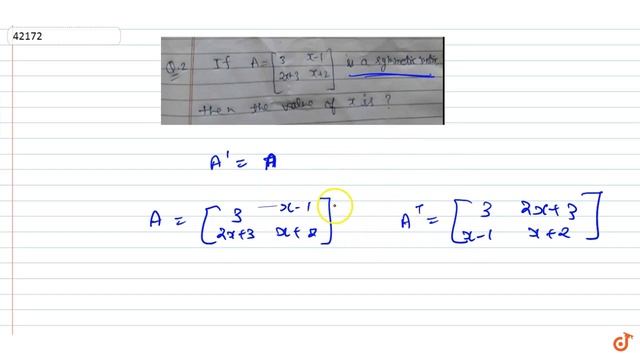 42172
Q.2 If A = [3 x-1
2x+3 x+2] is a symmetric matrix
then the value of x is ?
A' = A
A = [3 x-1
2x+3 x+2]
A^T = [3 2x+3
x-1 x+2]